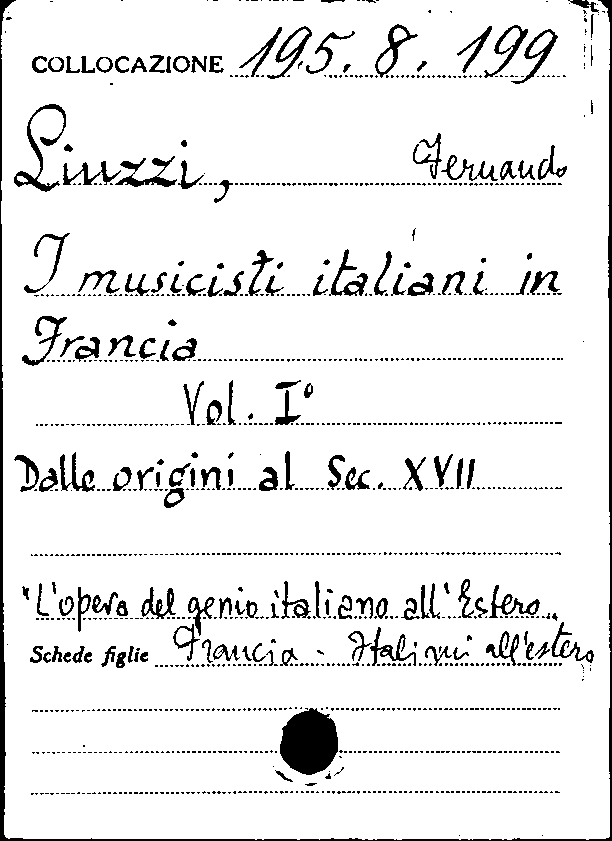 COLLOCAZIONE 195. 8. 199
Liuzzi, Fernando
I musicisti italiani in
Francia
Vol. I°
Dalle origini al Sec. XVII
"L'opera del genio italiano all'Estero"
Schede figlie Francia - Italiani all'estero